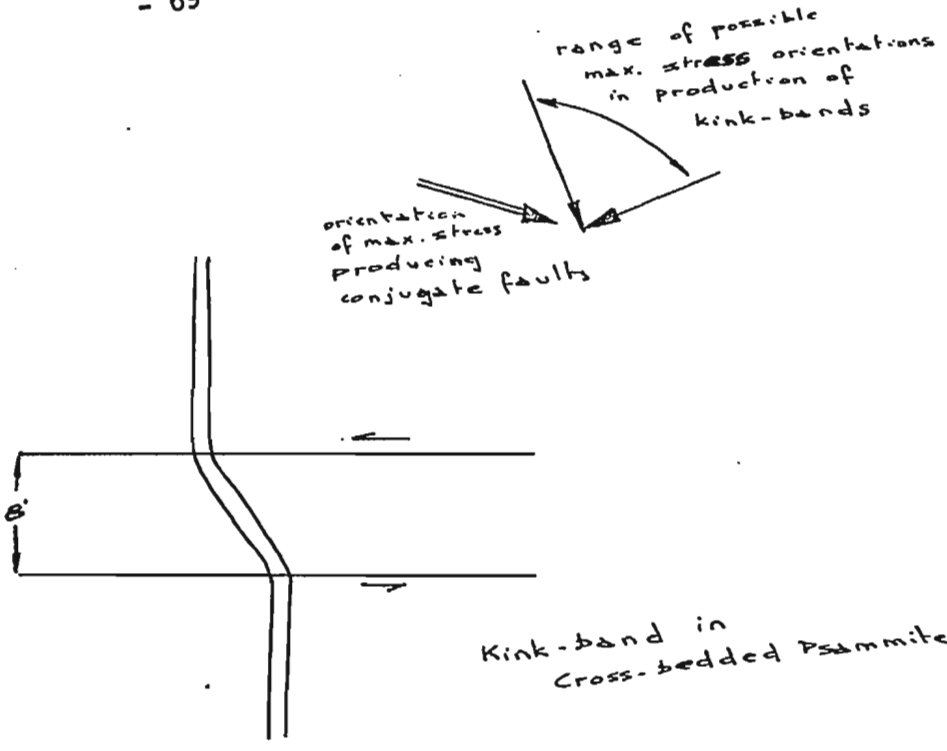 - 69
range of possible
max. stress orientations
in production of
kink-bands
orientation
of max. stress
producing
conjugate faults
8'
Kink-band in
Cross-bedded Psammite